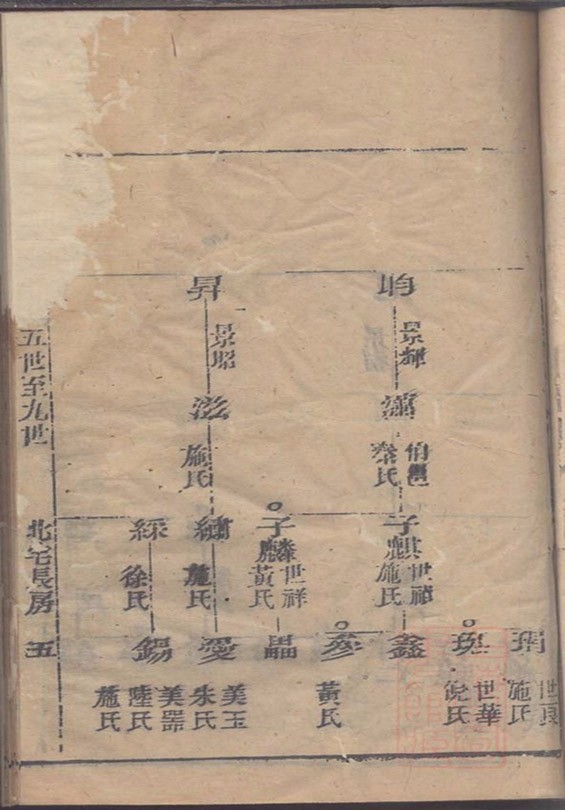 昇
景照
景輝
施氏
伯
蔡氏
子麒
世禎
施氏
子麟
世祥
黃氏
繡
施氏
綵
徐氏
世良
施氏
世華
倪氏
鑫
黃氏
愛
美玉
朱氏
錫
美器
陸氏
施氏
五世至九世
北宅長房
五